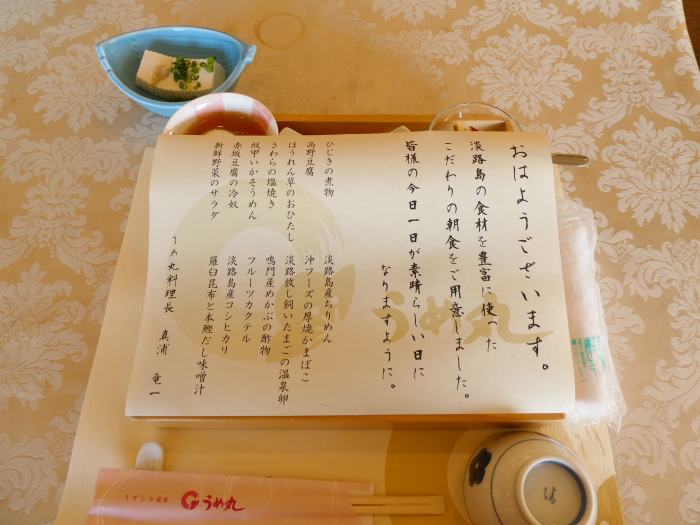 おはようございます。
淡路島の食材を豊富に使った
こだわりの朝食をご用意しました。
皆様の今日一日が素晴らしい日に
なりますように。
ひじきの煮物
高野豆腐
ほうれん草のおひたし
さわらの塩焼き
紋甲いかそうめん
赤坂豆腐の冷奴
新鮮野菜のサラダ
淡路島産ちりめん
沖フーズの厚焼かまぼこ
淡路放し飼いたまごの温泉卵
鳴門産めかぶの酢物
フルーツカクテル
淡路島産コシヒカリ
羅臼昆布と本鰹だし味噌汁
うめ丸料理長 真浦 竜一
うめ丸
うずしお温泉
うめ丸